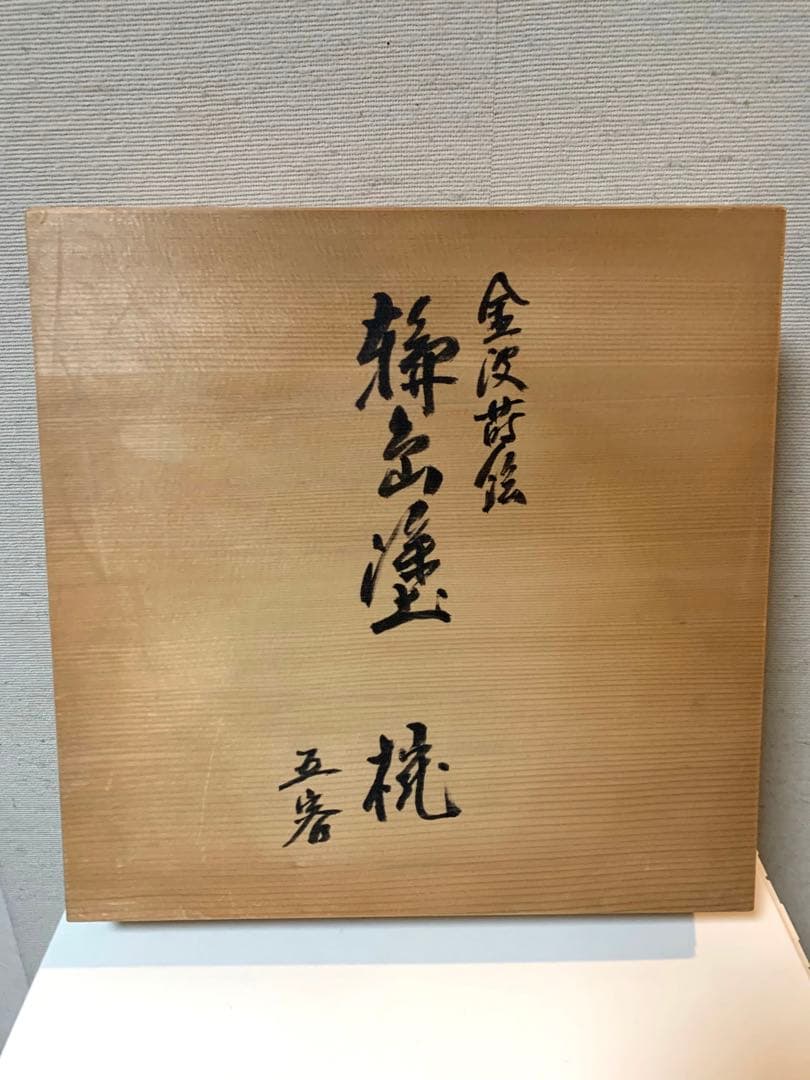 金波蒔絵
輪島塗 椀
五客